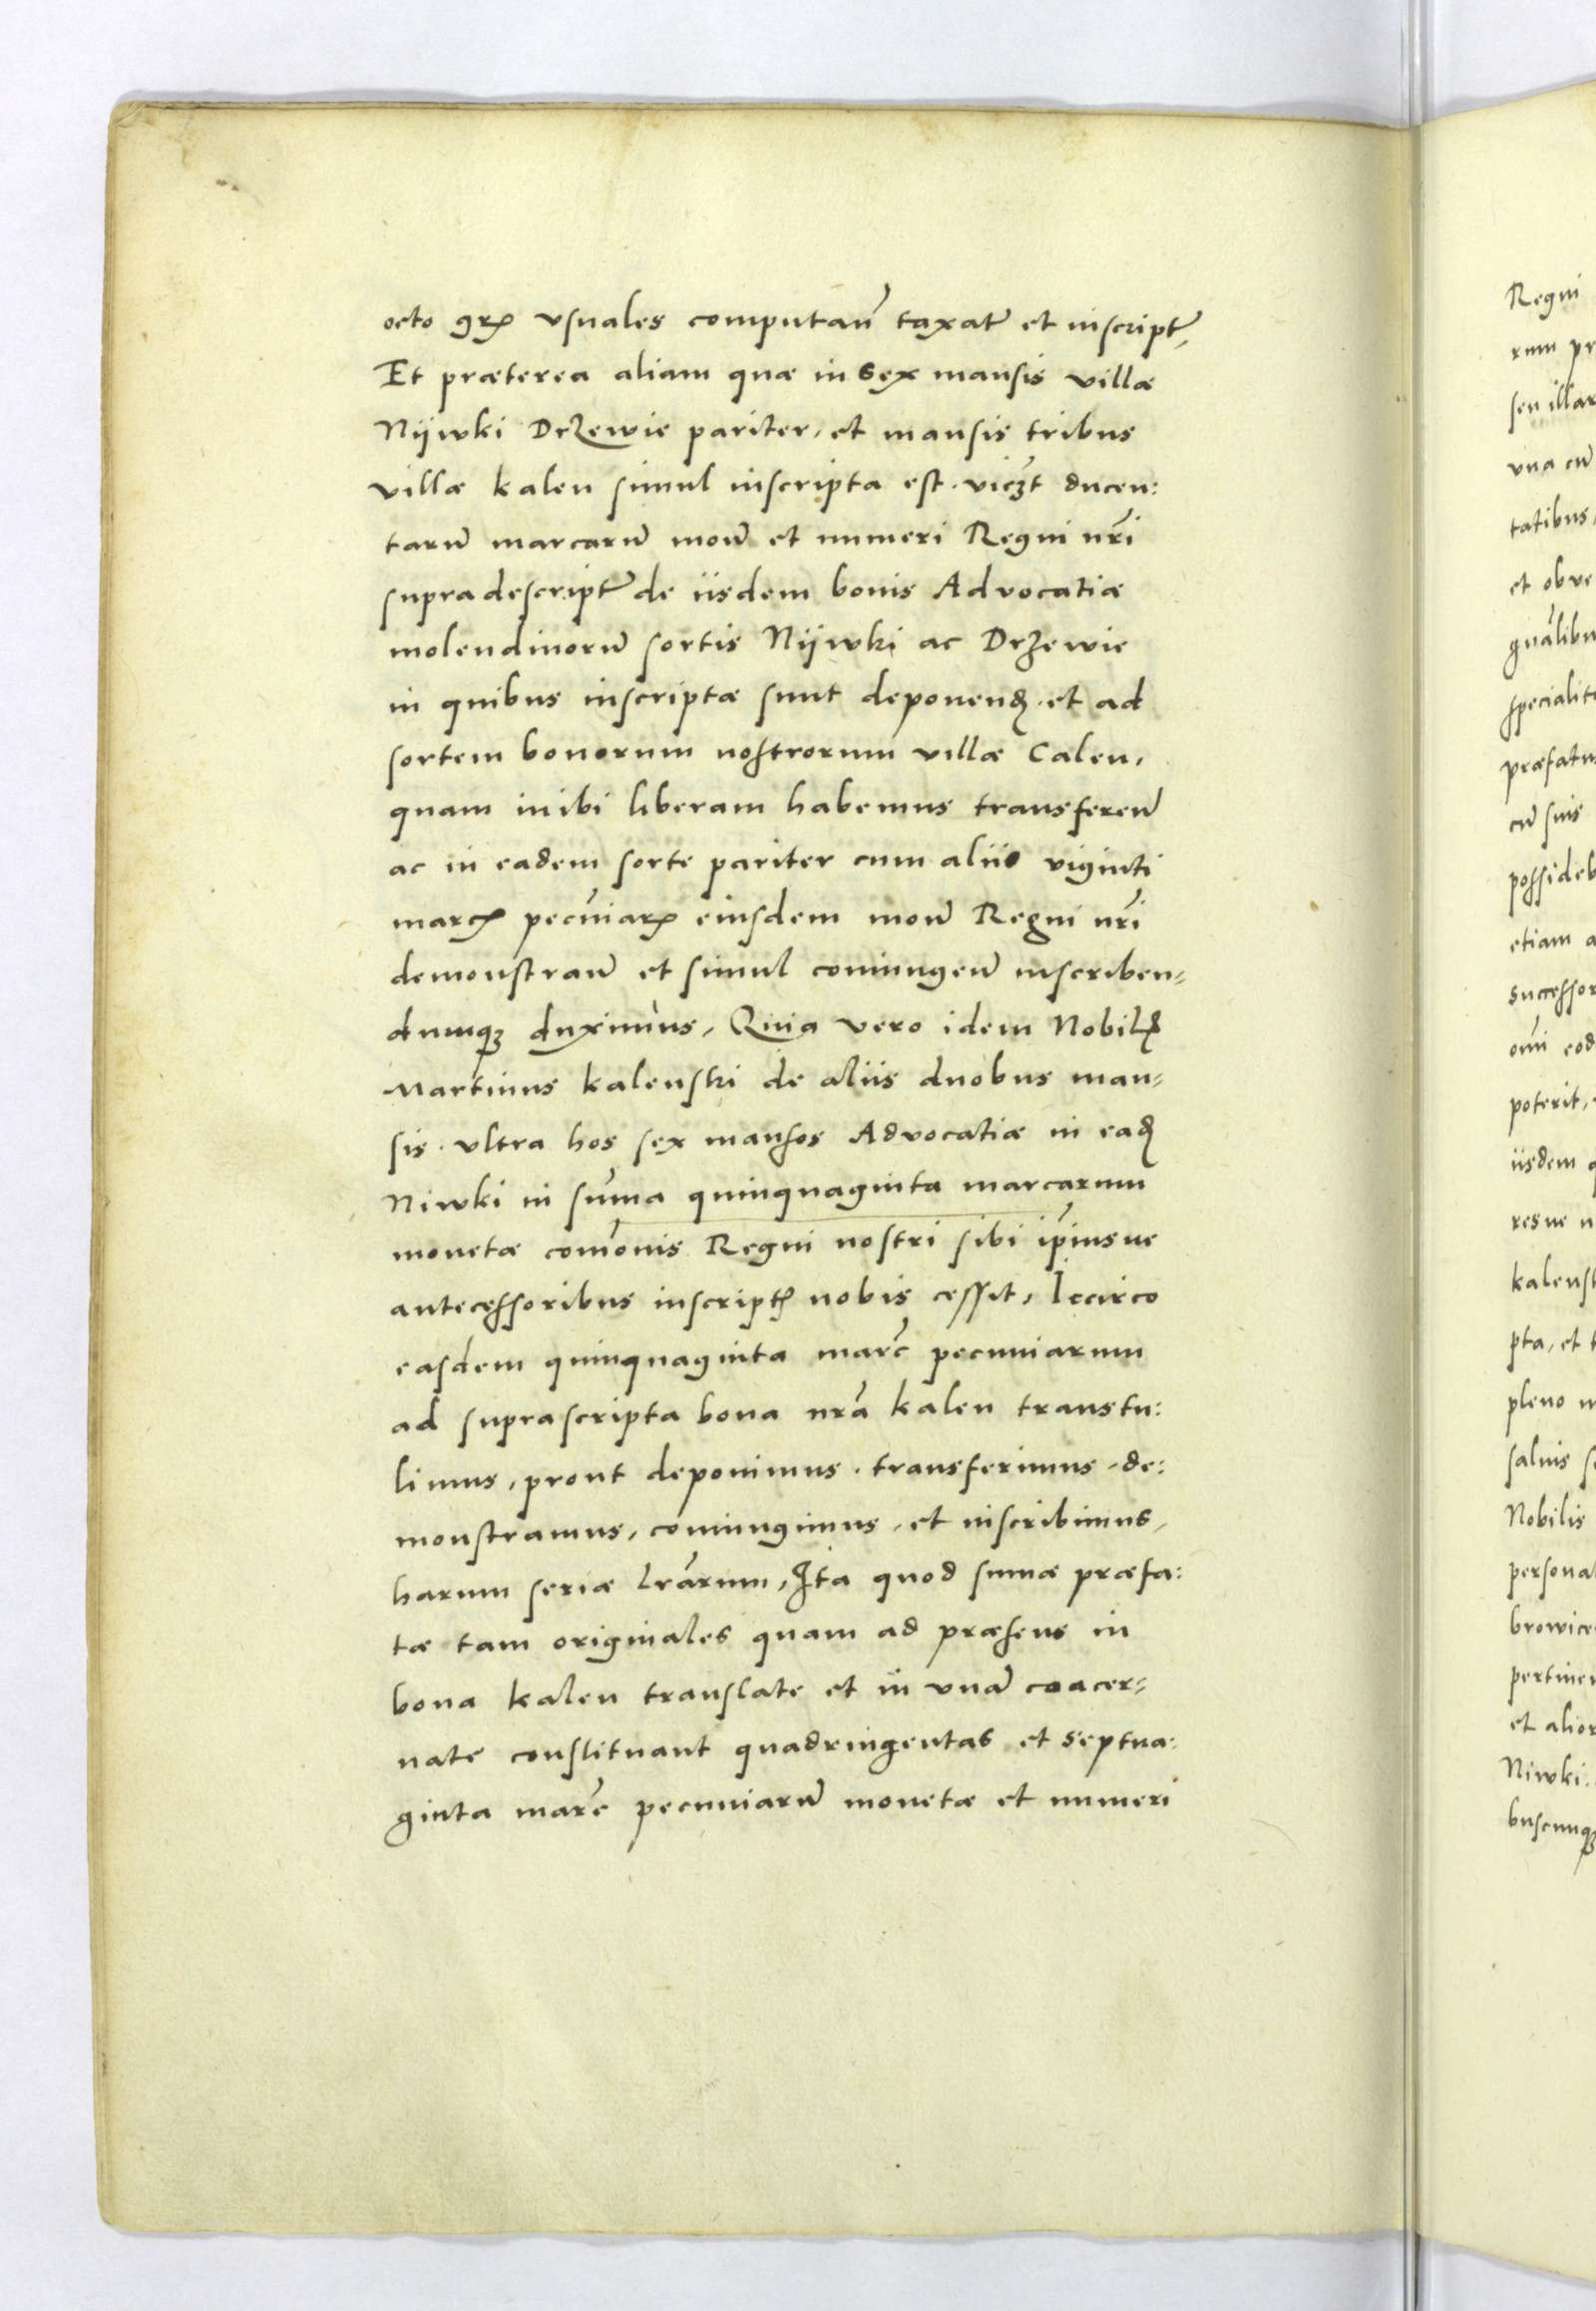 octo grꝝ vsuales computan̄ taxat̄ et inscript̄,
Et præterea aliam quæ in sex mansis villæ
Nijwki Drzewie pariter, et mansis tribus
villæ kalen simul inscripta est. vicꝫt ducen:
tarū marcarū mon̄ et numeri Regni nr̄i
supradescript̄ de iisdem bonis Advocatiæ
molendinorū sortis Nijwki ac Drzewie
in quibus inscriptæ sunt deponenđ. et ad
sortem bonorum nostrorum villæ Calen,
quam inibi liberam habemus transferen̄
ac in eadem sorte pariter cum aliis viginti
marcꝝ pecūiarꝝ eiusdem mon̄ Regni nr̄i
demonstran̄ et simul coniungen̄ inscriben⸗
dumqꝫ duximus, Quia vero idem Nobilꝭ
Martinus kalenski de aliis duobus man⸗
sis. vltra hos sex mansos Advocatiæ in eađ
Niwki in sum̄a quinquaginta marcarum
monetæ com̄onis Regni nostri sibi ip̄iusve
antecessoribus inscriptꝭ nobis cessit, Iccirco
easdem quinquaginta marc̄ pecuniarum
ad suprascripta bona nr̄a kalen transtu:
limus, prout deponimus. transferimus. de:
monstramus, coniungimus, et inscribimus,
harum seriæ lr̄arum, Ita quod sumæ præfa:
tæ tam originales quam ad præsens in
bona kalen translate et in vnā coacer⸗
uate constituant quadringentas et septua:
ginta marc̄ pecuniarū monetæ et numeri
Regni
rum pr
seu illar
vna cū
tatibus,
et obve
gnālibu
specialite
præfatu
cū suis
possideb
etiam a
successor
om̄i eod
poterit,
iisdem q
resve n
kalensk
pta, et t
pleno
saluis s
Nobilis
personal
browice
pertinen
et alior
Niwki.
buscunqꝫ